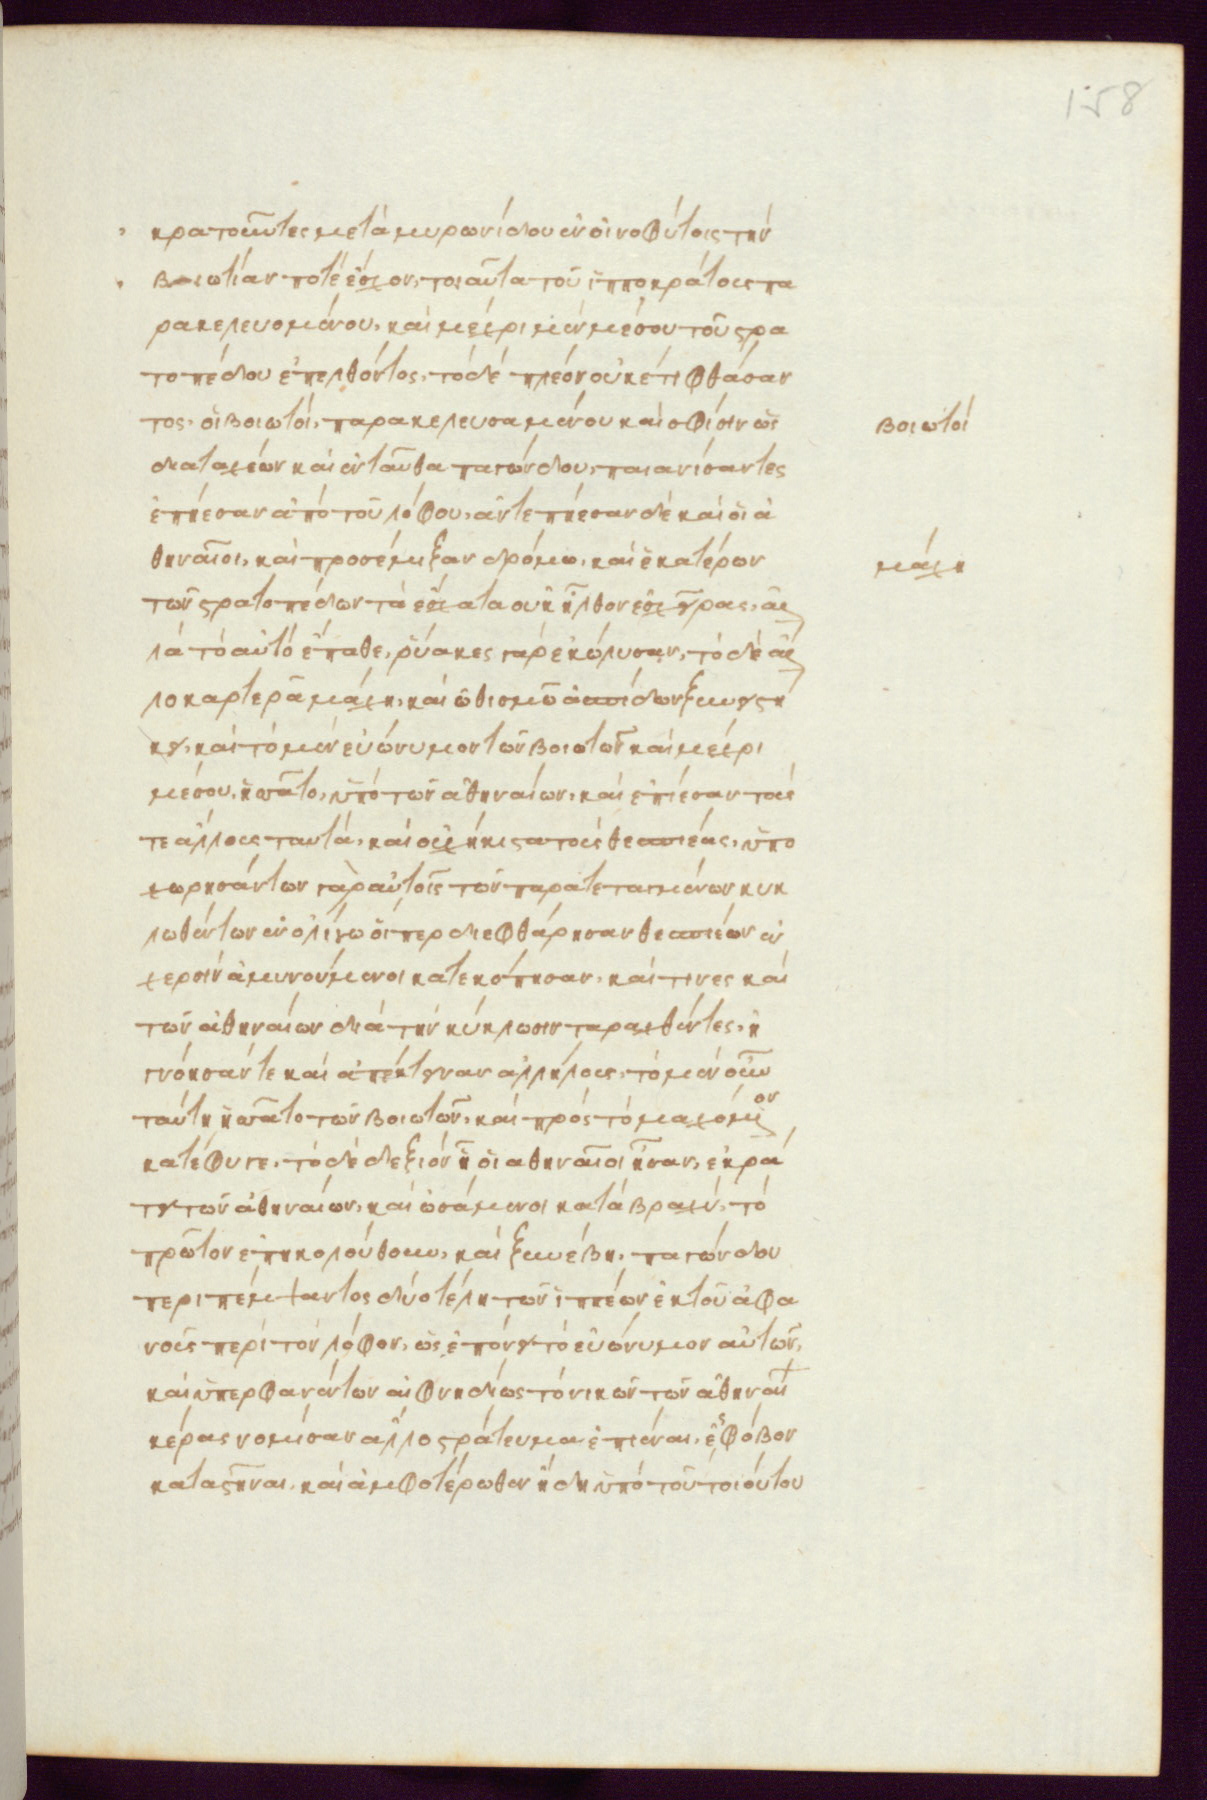 158
κρατοῦντες μετὰ μυρωνίδου ἐν οἰνοφύτοις τὴν
βοιωτίαν ποτὲ ἔσχον, τοιαῦτα τοῦ ἱπποκράτους πα
ρακελευομένου, καὶ μέχρι μὲν μέσου τοῦ στρα
τοπέδου ἐπελθόντος, τὸ δὲ πλέον οὐκέτι φθάσαν
τος, οἱ βοιωτοί, παρακελευσαμένου καὶ σφίσιν ὡς
βοιωτοί
διαταχέων καὶ ἐνταῦθα παγώνδου, παιανίσαντες
ἐπῄεσαν ἀπὸ τοῦ λόφου, ἀντεπῄεσαν δὲ καὶ οἱ ἀ
θηναῖοι, καὶ προσέμιξαν δρόμω, καὶ ἑκατέρων
μάχη
τῶν στρατοπέδων τὰ ἔσχατα οὐκ ἦλθον ἐς χεῖρας, ἀλ
λὰ τὸ αὐτὸ ἔπαθε, ῥύακες γὰρ ἐκώλυσαν, τὸ δὲ ἄλ
λο καρτερᾶ μάχη, καὶ ὠθισμῶ ἀσπίδων ξυνειστή
κει, καὶ τὸ μὲν εὐώνυμον τῶν βοιωτῶν καὶ μέχρι
μέσου, ἡσσᾶτο, ὑπὸ τῶν ἀθηναίων, καὶ ἐπίεσαν τούς
τε ἄλλους ταυτά, καὶ οὐχ ἥκιστα τοὺς θεσπιέας, ὑπο
χωρησάντων γὰρ αὐτοῖς τῶν παρατεταγμένων κυκ
λωθέντων ἐν ὀλίγω οἵπερ διεφθάρησαν θεσπιέων ἐν
χερσὶν ἀμυνούμενοι κατεκόπησαν, καί τινες καὶ
τῶν ἀθηναίων διὰ τὴν κύκλωσιν ταραχθέντες, ἠ
γνόησάν τε καὶ ἀπέκτειναν ἀλλήλους, τὸ μὲν οὖν
ταύτη ἡσσᾶτο τῶν βοιωτῶν, καὶ πρὸς τὸ μαχόμενον
κατέφυγε, τὸ δὲ δεξιὸν ἧ οἱ αθηναῖοι ἦσαν, ἐκρά
τει τῶν ἀθηναίων, καὶ ὠσάμενοι κατὰ βραχύ, τὸ
πρῶτον ἐπηκολούθουν, καὶ ξυνέβη, παγώνδου
περιπέμψαντος δύο τέλη τῶν ἱππέων ἐκ τοῦ ἀφα
νοῦς περὶ τὸν λόφον, ὡς ἐπόνει τὸ εὐώνυμον αὐτῶν,
καὶ ὑπερφανέντων αἰφνηδίως τὸ νικῶν τῶν ἀθηναί
κέρας νομίσαν ἄλλο στράτευμα ἐπιέναι, ἐς φόβον
καταστῆναι, καὶ ἀμφοτέρωθεν ἤδη ὑπό τοῦ τοιούτου